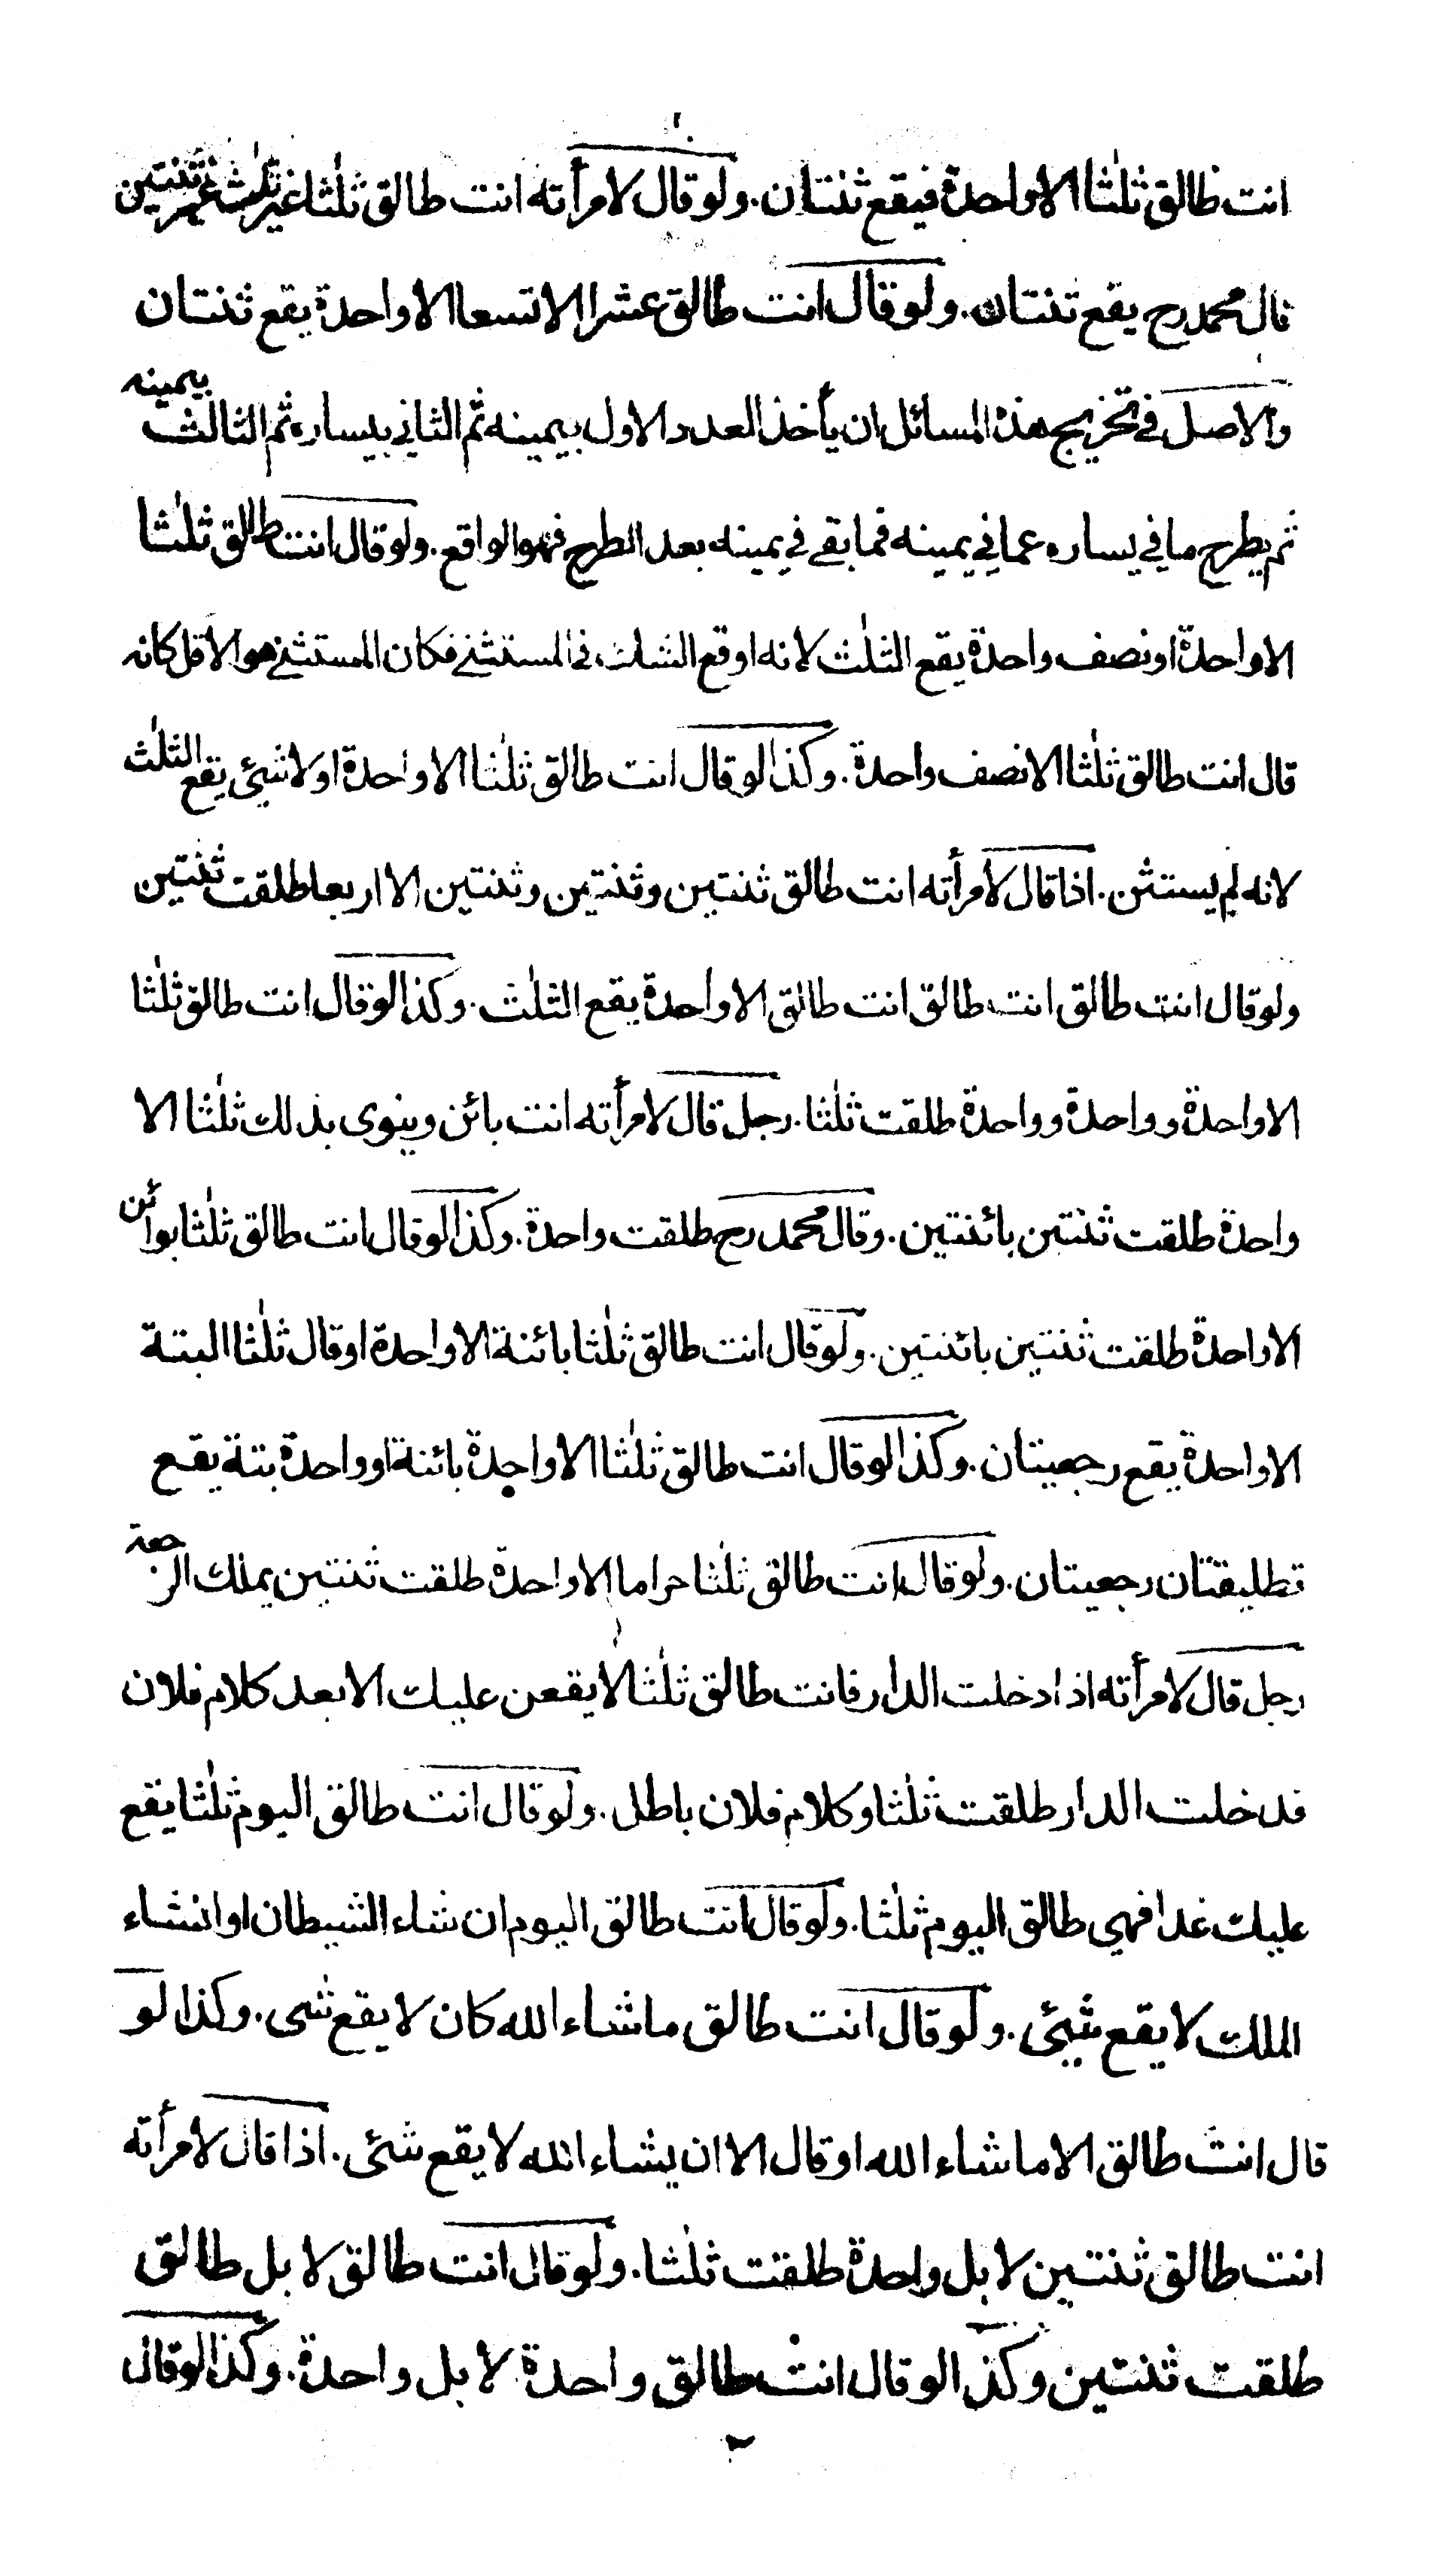 انت طالق ثلٰثا الا واحدة فيقع ثنتان. ولو قال لامرأته انت طالق ثلٰثا غير ثلٰث غير ثنتين
قال محمد رح يقع ثنتان. ولو قال انت طالق عشرا الا تسعا الا واحدة يقع ثنتان
والاصل في تخريج هذه المسائل ان يأخذ العدد الاول بيمينه ثم الثاني بيساره ثم الثالث بيمينه
ثم يطرح ما في يساره عما في يمينه فما بقي في يمينه بعد الطرح فهو الواقع. ولو قال انت طالق ثلٰثا
الا واحدة او نصف واحدة يقع الثلٰث لانه اوقع الشك في المستثنى فكان المستثنى هو الاقل كانه
قال انت طالق ثلٰثا الا نصف واحدة. وكذا لو قال انت طالق ثلٰثا الا واحدة او لا شيئ يقع الثلٰث
لانه لم يستثن. اذا قال لامرأته انت طالق ثنتين وثنتين وثنتين الا اربعا طلقت ثنتين
ولو قال انت طالق انت طالق انت طالق الا واحدة يقع الثلٰث. وكذا لو قال انت طالق ثلٰثا
الا واحدة وواحدة وواحدة طلقت ثلٰثا. رجل قال لامرأته انت بائن وينوى بذلك ثلٰثا الا
واحدة طلقت ثنتين بائنتين. وقال محمد رح طلقت واحدة. وكذا لو قال انت طالق ثلٰثا بوائن
الا واحدة طلقت ثنتين بائنتين. ولو قال انت طالق ثلٰثا بائنة الا واحدة او قال ثلٰثا البتة
الا واحدة يقع رجعيتان. وكذا لو قال انت طالق ثلٰثا الا واحدة بائنة او واحدة بتة يقع
تطليقتان رجعيتان. ولو قال انت طالق ثلٰثا حراما الا واحدة طلقت ثنتين يملك الرجعة
رجل قال لامرأته اذا دخلت الدار فانت طالق ثلٰثا لا يقعن عليك الا بعد كلام فلان
فدخلت الدار طلقت ثلٰثا وكلام فلان باطل. ولو قال انت طالق اليوم ثلٰثا يقع
عليك غدا فهي طالق اليوم ثلٰثا. ولو قال انت طالق اليوم ان شاء الشيطان او ان شاء
الملك لا يقع شيئ. ولو قال انت طالق ما شاء الله كان لا يقع شى. وكذا لو
قال انت طالق الا ما شاء الله او قال الا ان يشاء الله لا يقع شئى. اذا قال لامرأته
انت طالق ثنتين لا بل واحدة طلقت ثلٰثا. ولو قال انت طالق لا بل طالق
طلقت ثنتين وكذا لو قال انت طالق واحدة لا بل واحدة. وكذا لو قال